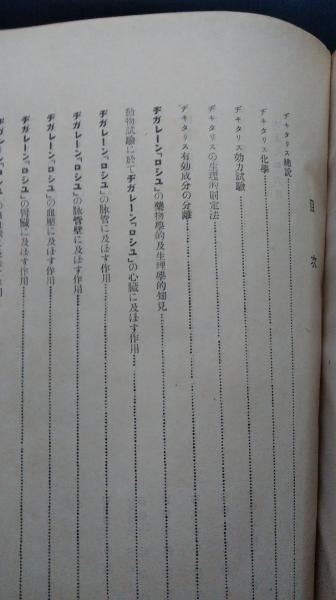 目次
ヂキタリス總説
ヂキタリス化學
ヂキタリス効力試驗
ヂキタリスの生理的制定法
ヂキタリス有効成分の分離
ヂガレーン「ロシユ」の藥物學的及生理學的知見
動物試驗に於てヂガレーン「ロシユ」の心臟に及ぼす作用
ヂガレーン「ロシユ」の脉管に及ぼす作用
ヂガレーン「ロシユ」の脉管壁に及ぼす作用
ヂガレーン「ロシユ」の血壓に及ぼす作用
ヂガレーン「ロシユ」の腎臟に及ぼす作用